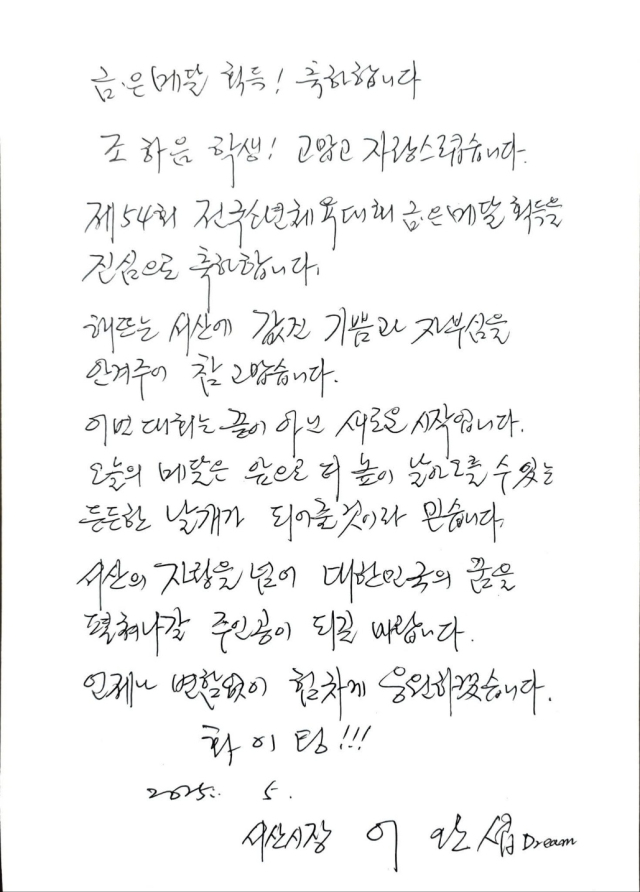 금.은메달 획득! 축하합니다
조 하음 학생! 고맙고 자랑스럽습니다.
제54회 전국소년체육대회 금.은메달 획득을
진심으로 축하합니다.
해뜨는 서산에 값진 기쁨과 자부심을
안겨주어 참 고맙습니다.
이번 대회는 끝이 아닌 새로운 시작입니다.
오늘의 메달은 앞으로 더 높이 날아오를 수 있는
든든한 날개가 되어줄 것이라 믿습니다.
서산의 자랑을 넘어 대한민국의 꿈을
펼쳐나갈 주인공이 되길 바랍니다.
언제나 변함없이 힘차게 응원하겠습니다.
화이팅!!!
2025. 5.
서산시장 이 완 섭 Dream